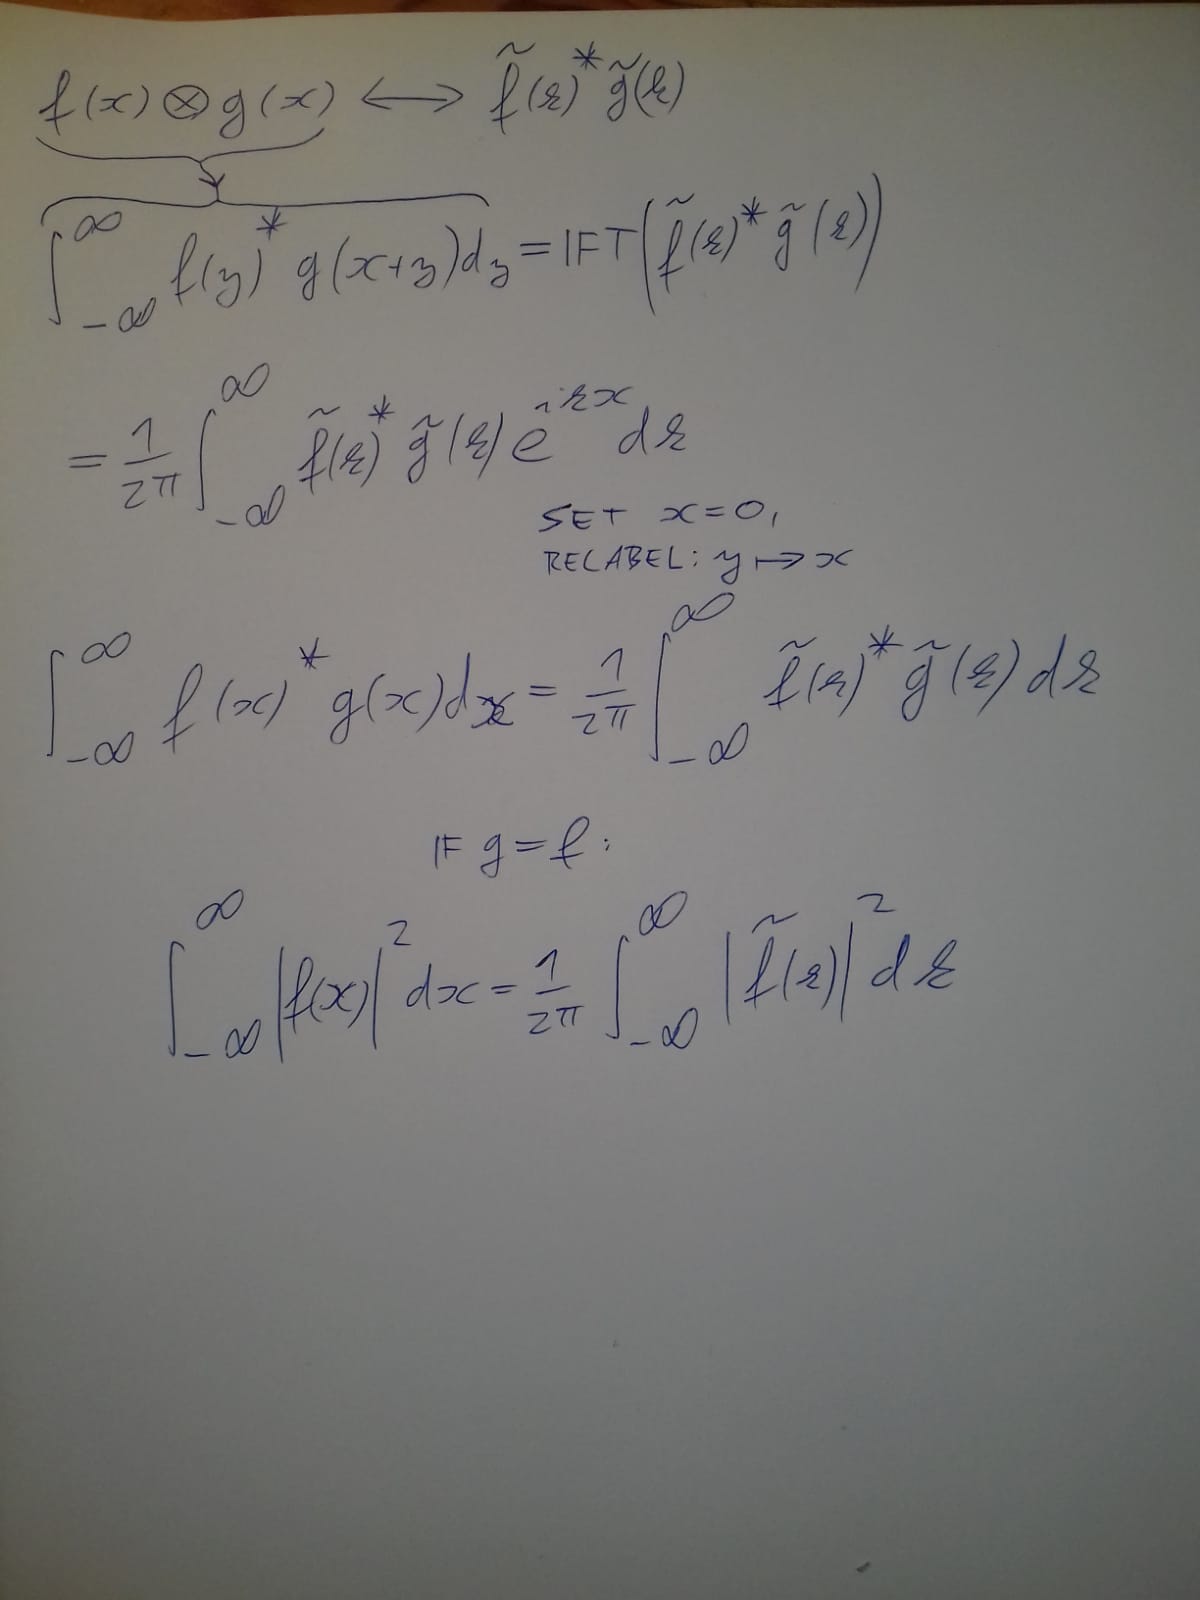 f(x) ⊗ g(x) ⟷ f̃(k)* g̃(k)
∫_{-∞}^{∞} f(y)* g(x+y)dy = IFT(f̃(k)* g̃(k))
= 1/2π ∫_{-∞}^{∞} f̃(k)* g̃(k) e^{ikx} dk
SET x=0,
RELABEL: y ↦ x
∫_{-∞}^{∞} f(x)* g(x)dx = 1/2π ∫_{-∞}^{∞} f̃(k)* g̃(k) dk
IF g=f:
∫_{-∞}^{∞} |f(x)|² dx = 1/2π ∫_{-∞}^{∞} |f̃(k)|² dk